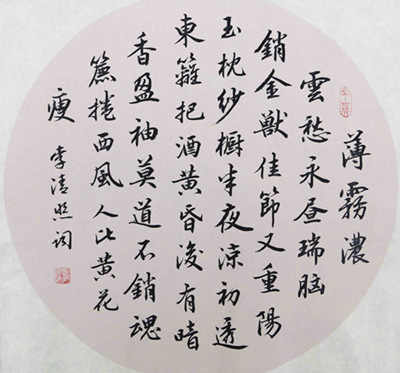 薄霧濃
雲愁永昼瑞脑
銷金獸佳節又重陽
玉枕纱橱半夜涼初透
東籬把酒黄昏後有暗
香盈袖莫道不銷魂
簾捲西風人比黄花
瘦
李清照词